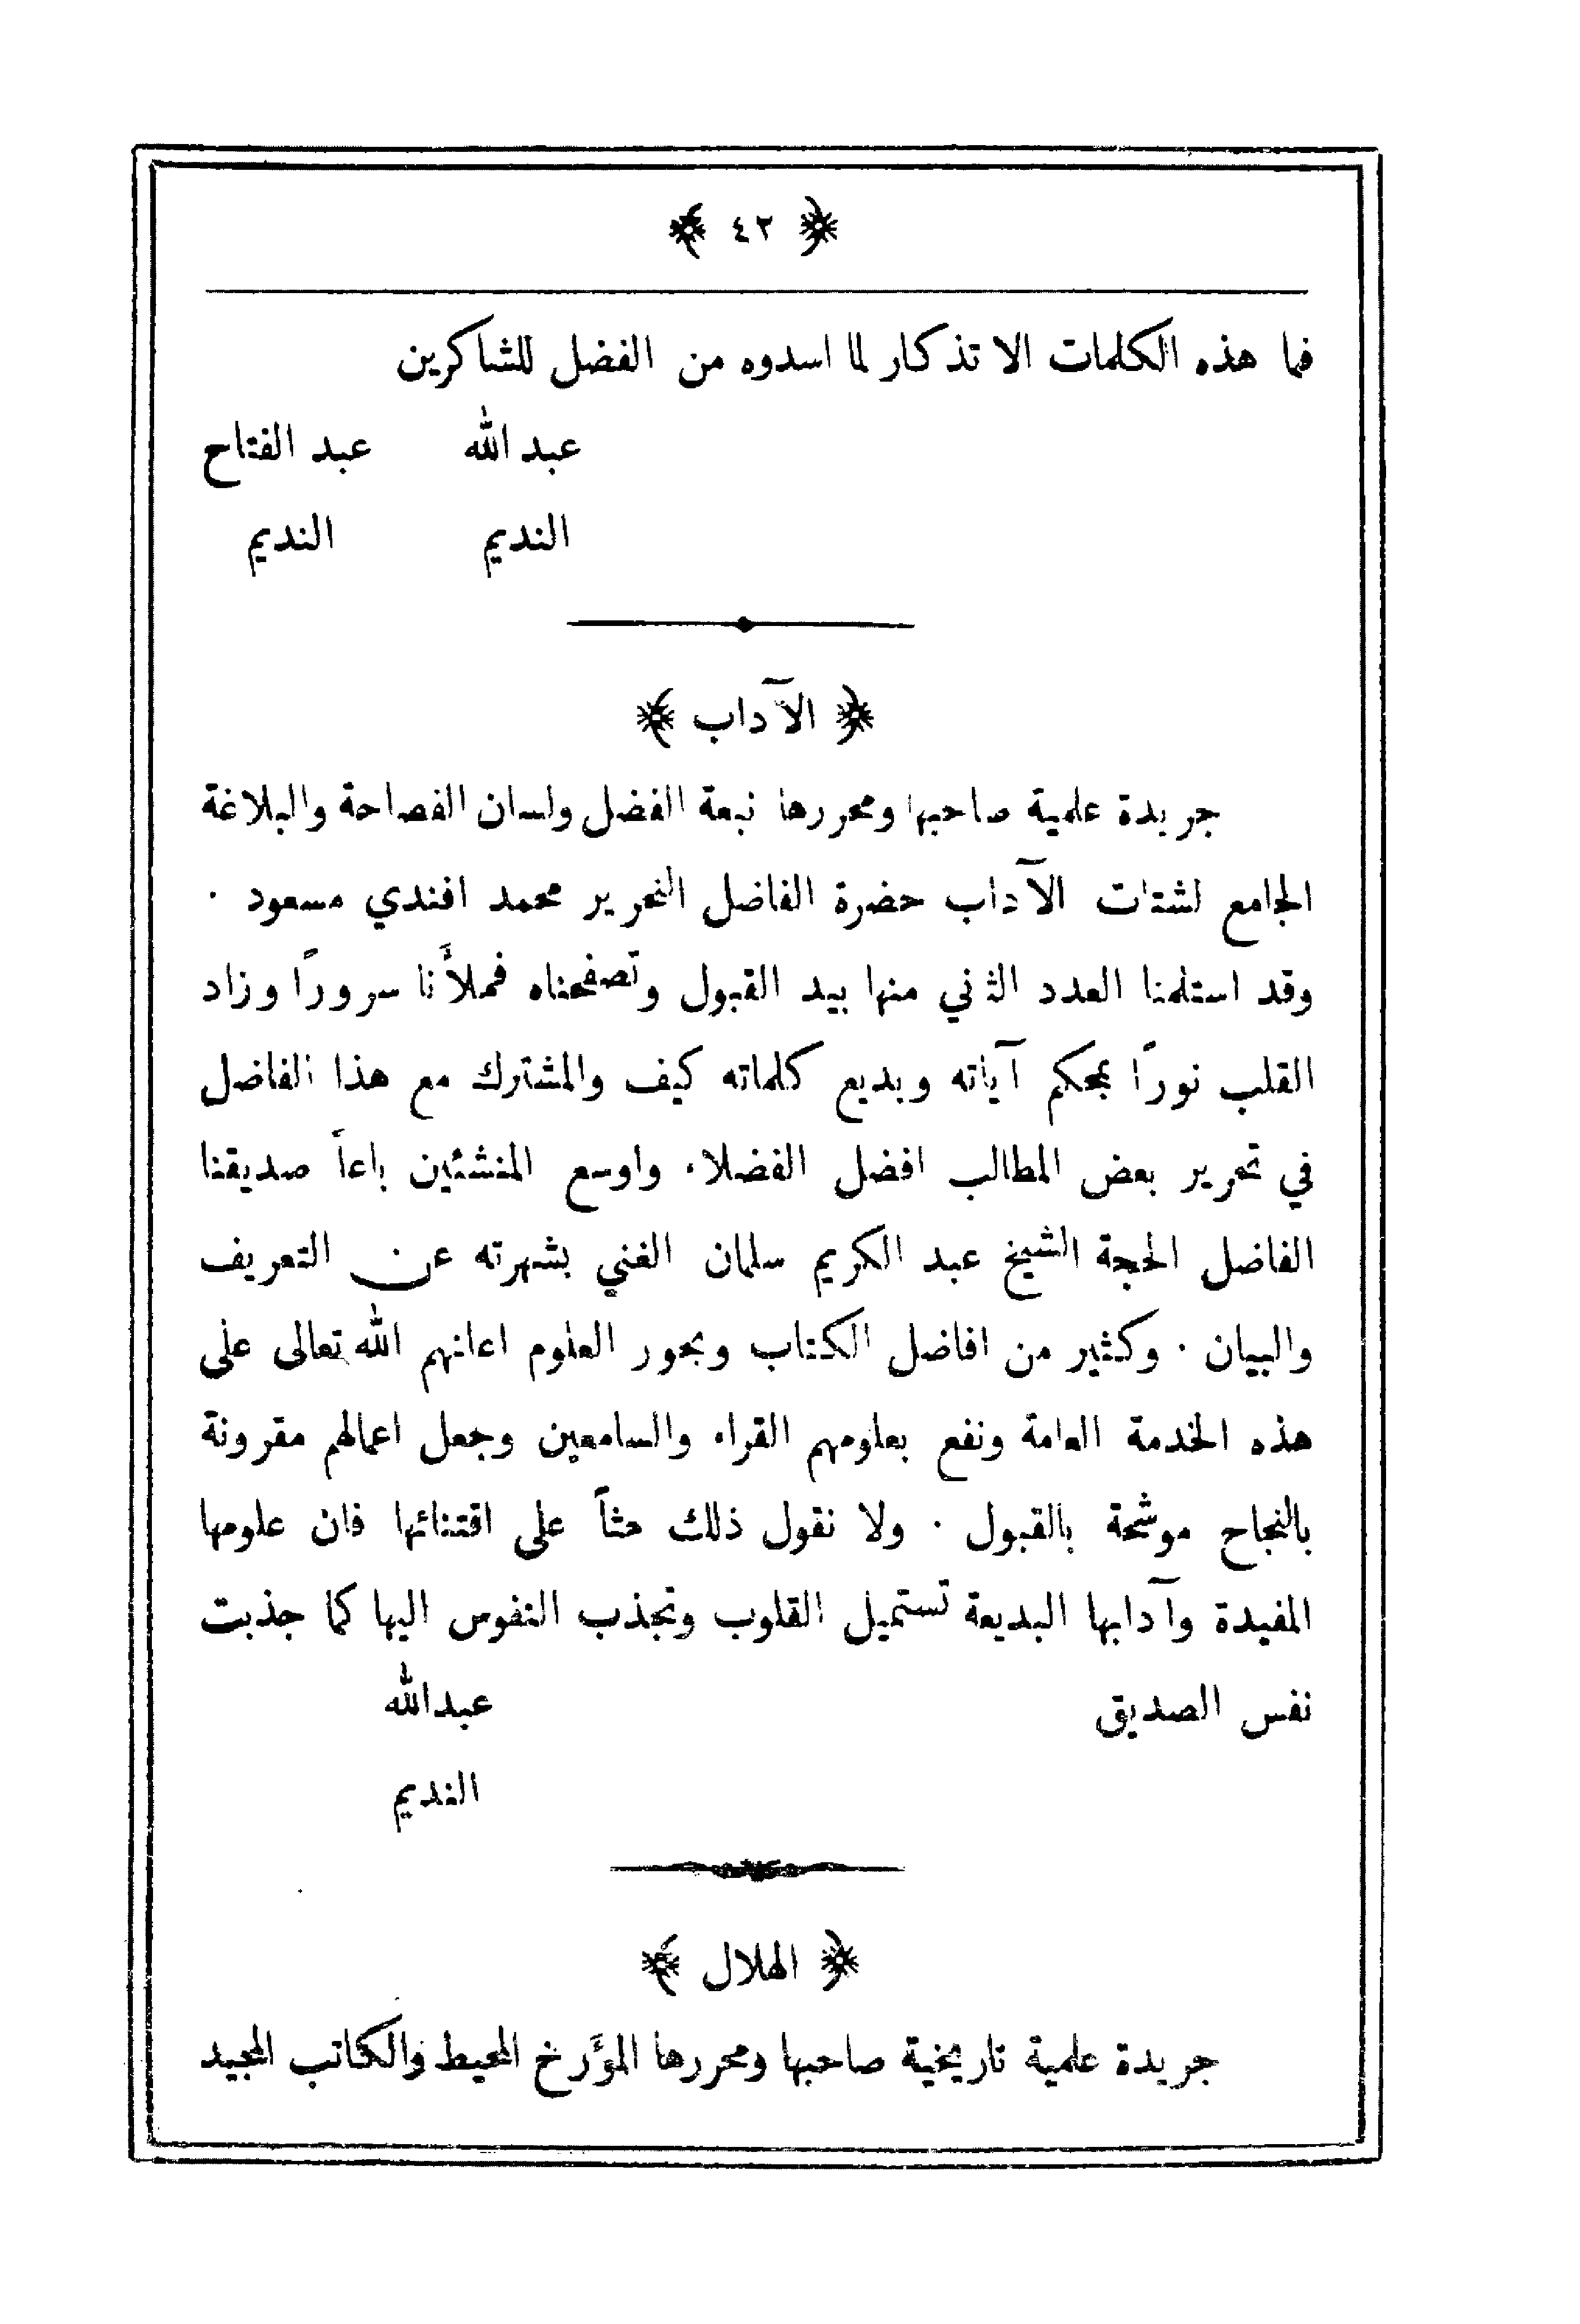 ﴿ ٤٢ ﴾
فما هذه الكلمات الا تذكار لما اسدوه من الفضل للشاكرين
عبد الله عبد الفتاح
النديم النديم
﴿ الآداب ﴾
جريدة علمية صاحبها ومحررها نبعة الفضل ولسان الفصاحة والبلاغة
الجامع لشتات الآداب حضرة الفاضل النحرير محمد افندي مسعود ·
وقد استلمنا العدد الثاني منها بيد القبول وتصفحناه فملأنا سرورًا وزاد
القلب نورًا بمحكم آياته وبديع كلماته كيف والمشترك مع هذا الفاضل
في تحرير بعض المطالب افضل الفضلاء واوسع المنشئين باعاً صديقنا
الفاضل الحجة الشيخ عبد الكريم سلمان الغني بشهرته عن التعريف
والبيان · وكثير من افاضل الكتاب وبحور العلوم اعانهم الله تعالى على
هذه الخدمة العامة ونفع بعلومهم القراء والسامعين وجعل اعمالهم مقرونة
بالنجاح موشحة بالقبول · ولا نقول ذلك حثاً على اقتنائها فان علومها
المفيدة وآدابها البديعة تستميل القلوب وتجذب النفوس اليها كما جذبت
نفس الصديق عبدالله
النديم
﴿ الهلال ﴾
جريدة علمية تاريخية صاحبها ومحررها المؤرخ المحيط والكاتب المجيد